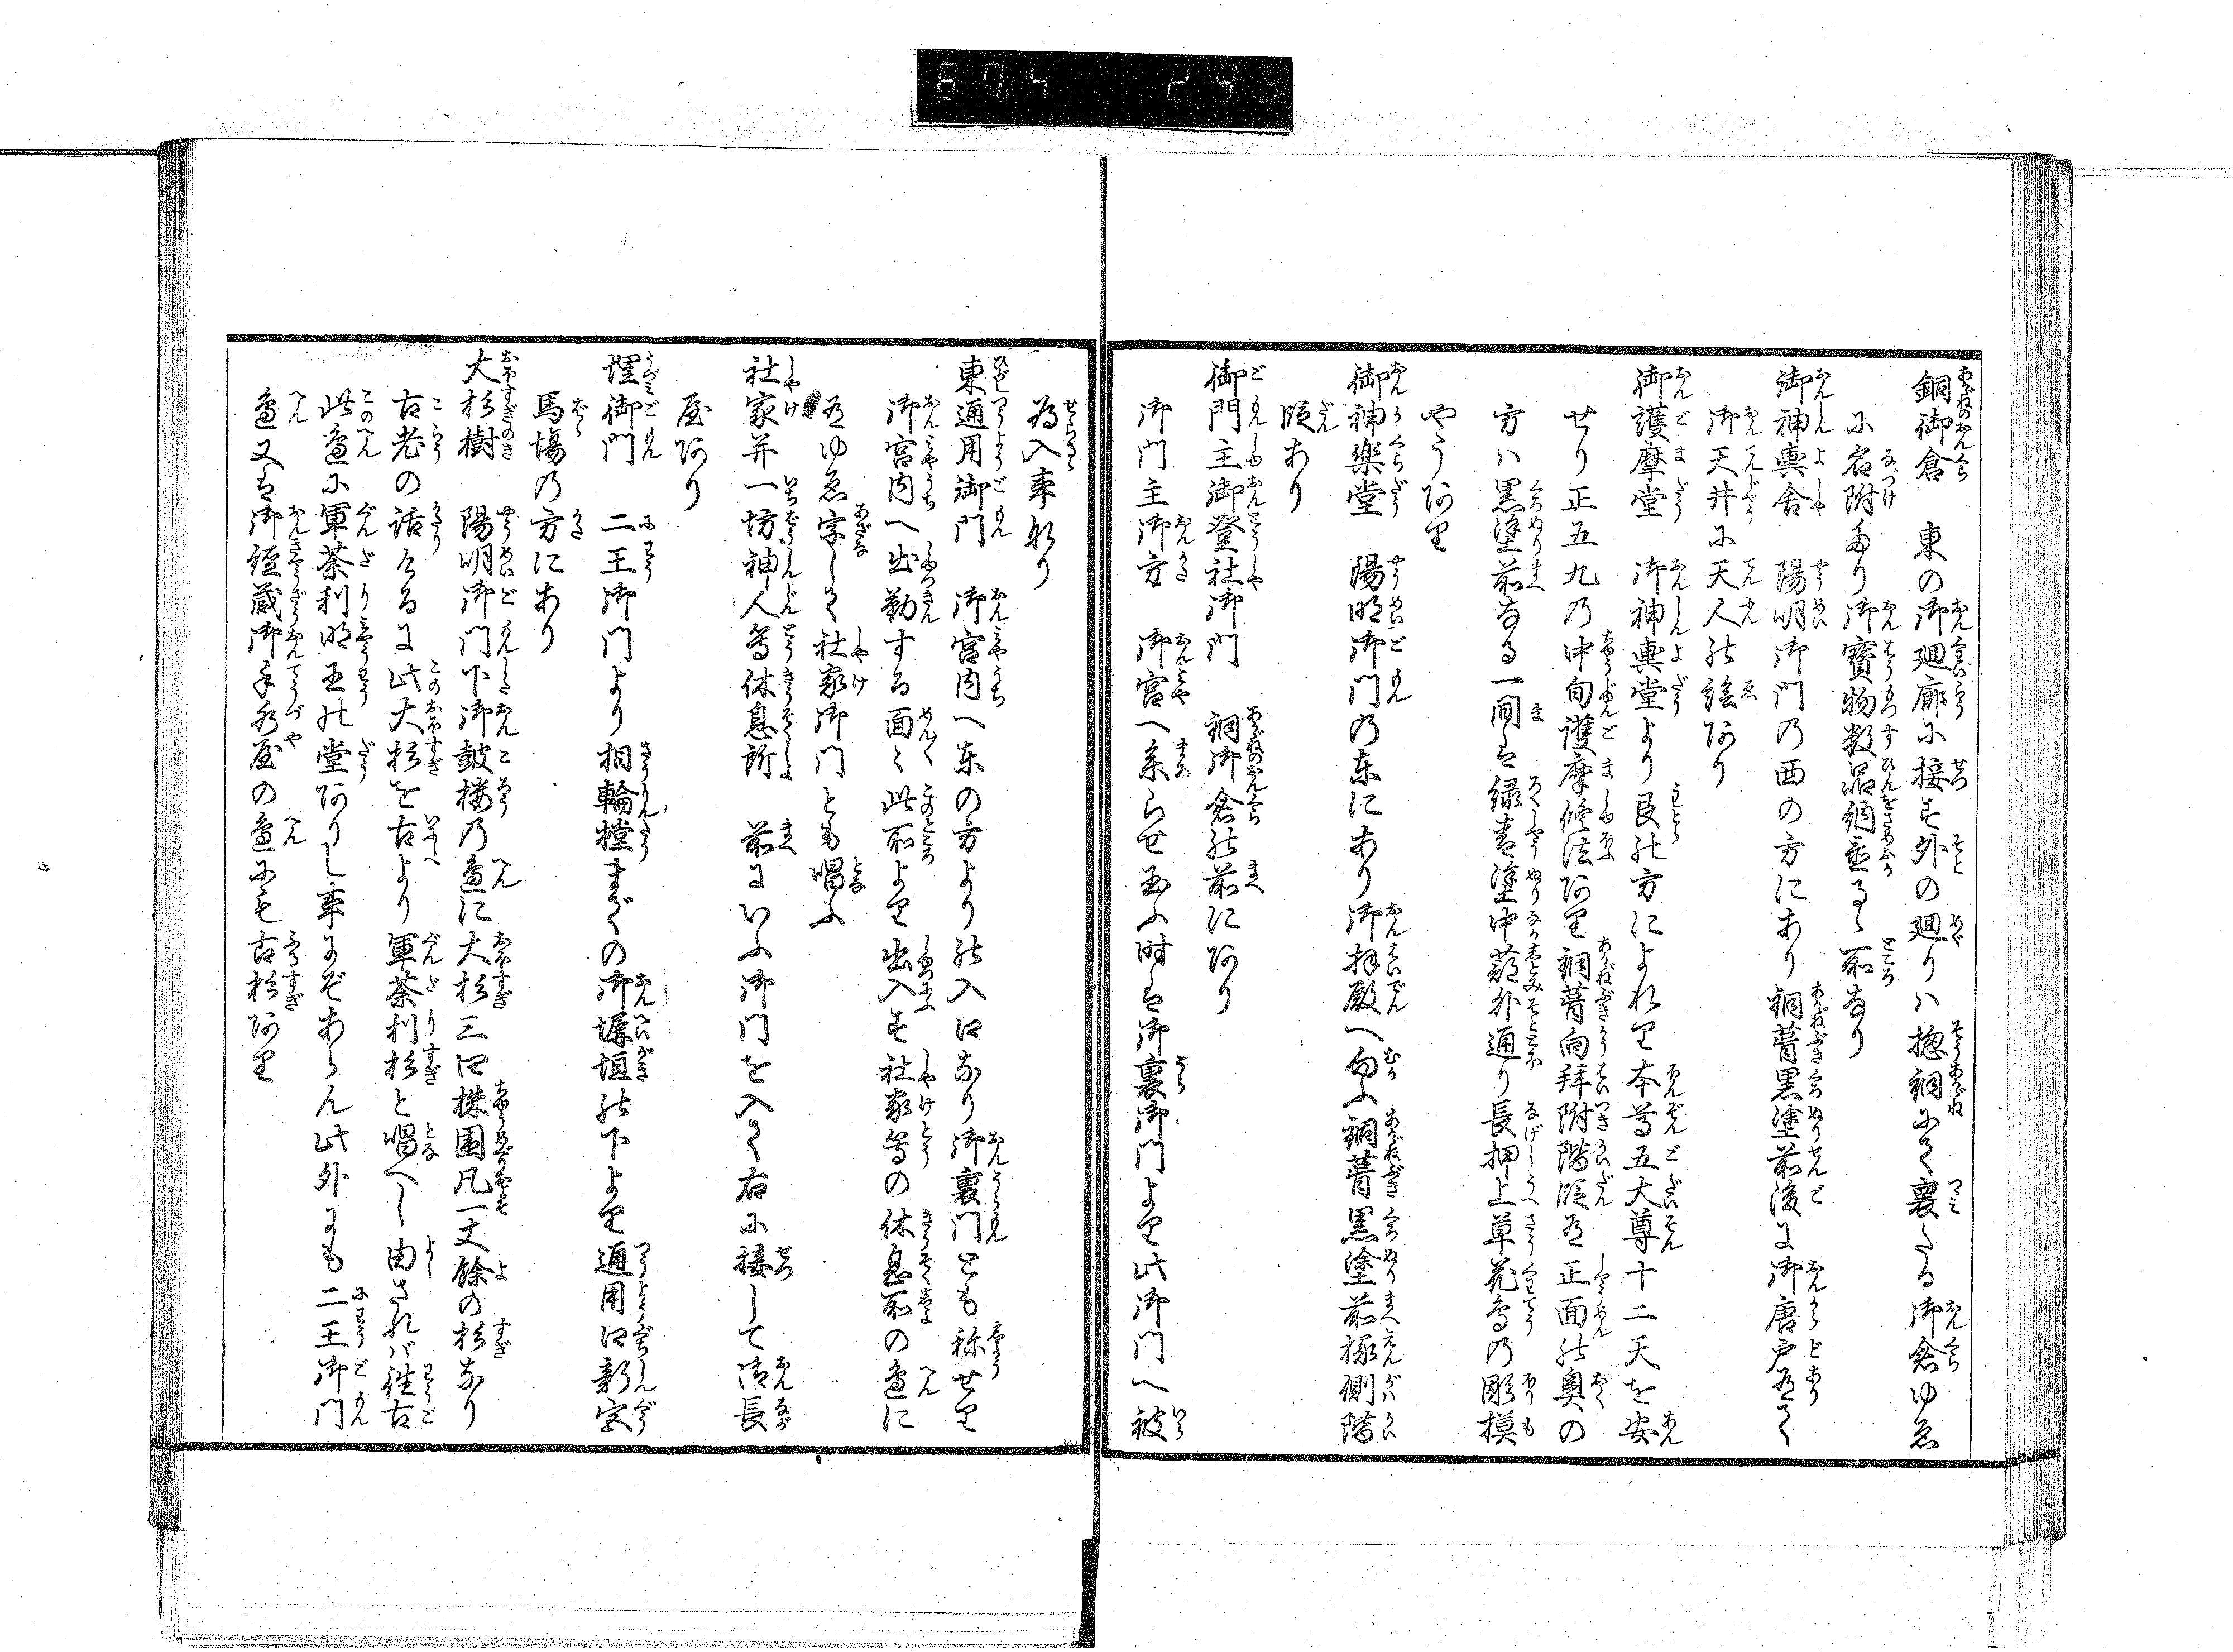 銅御倉　東の御廻廊に接す外の廻りハ惣銅にて裹たる御倉ゆゑ
に名附たり御寳物数品納置るゝ所なり
御神輿舎　陽明御門の西の方にあり銅葺黒塗前後に御唐戸有て
御天井に天人の絵あり
御護摩堂　御神輿堂より艮の方によれり本尊五大尊十二天を安
せり正五九の中旬護摩修法あり銅葺向拜附階段有正面の奥の
方ハ黒塗前なる一間は緑青塗中蔀外通り長押上草花鳥の彫摸
やうあり
御神楽堂　陽明御門の東にあり御拝殿へ向ふ銅葺黒塗前椽側階
段あり
御門主御登社御門　銅御倉の前にあり
御門主御方　御宮へ参らせ玉ふ時は御裏御門より此御門へ被
為入事なり
東通用御門　御宮内へ東の方よりの入口なり御裏門とも称せり
御宮内へ出勤する面〻此所より出入す社家等の休息所の邉に
有ゆゑ字して社家御門とも唱ふ
社家并一坊神人等休息所　前にいふ御門を入て右に接して御長
屋あり
埋御門　二王御門より相輪橖まぐの御塀垣の下より通用口新宮
馬場の方にあり
大杉樹　陽明御門下御鼓楼の邉に大杉三四株囲凡一丈餘の杉なり
古老の話けるは此大杉を古より軍荼利杉と唱へし由されバ徃古
此邉に軍荼利明王の堂ありし事にぞあらん此外にも二王御門
邉又は御經蔵御手水屋の邉にも古杉あり